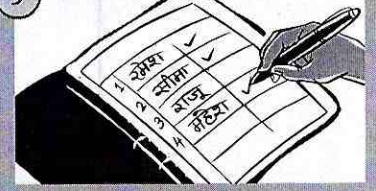 1 रमेश ✓
2 सीमा ✓
3 राजू ✓
4 महेश